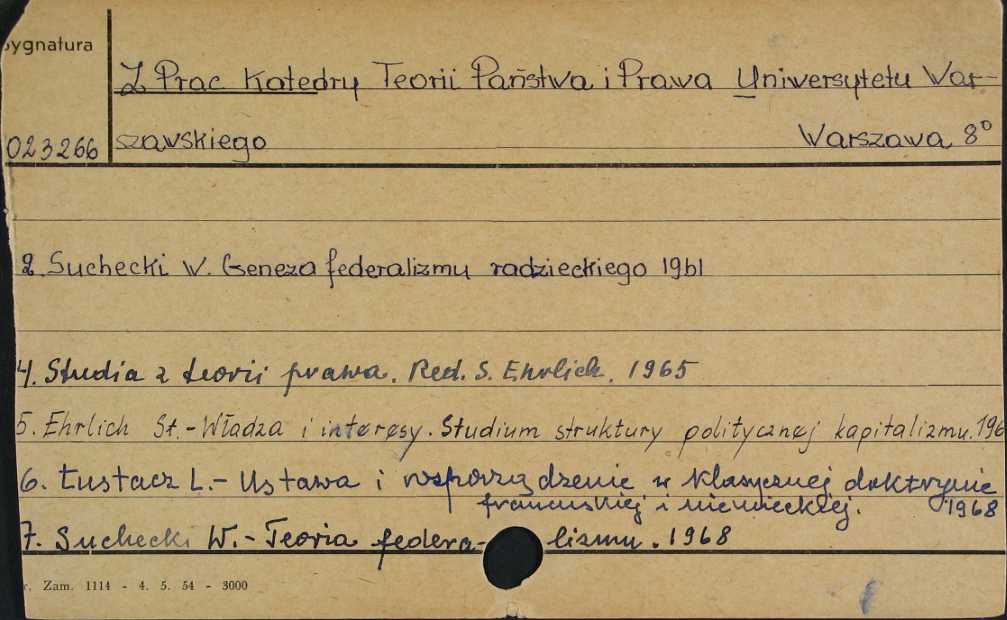 Sygnatura
Z Prac Katedry Teorii Państwa i Prawa Uniwersytetu War-
023266 szawskiego Warszawa 8°
2. Suchecki W. Geneza federalizmu radzieckiego 1961
4. Studia z teorii prawa. Red. S. Ehrlich. 1965
5. Ehrlich St. - Władza i interesy. Studium struktury politycznej kapitalizmu. 196
6. Łustacz L. - Ustawa i rozporządzenie w klasycznej doktrynie
francuskiej i niemieckiej. 1968
7. Suchecki W. - Teoria federa- lizmu. 1968
r. Zam. 1114 - 4. 5. 54 - 3000